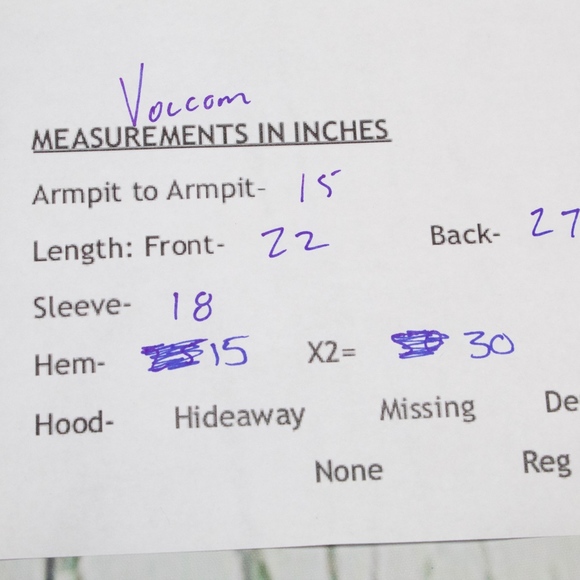 Voccom
MEASUREMENTS IN INCHES
Armpit to Armpit- 15
Length: Front- 22 Back- 27
Sleeve- 18
Hem- 15 X2= 30
Hood- Hideaway Missing De
None Reg